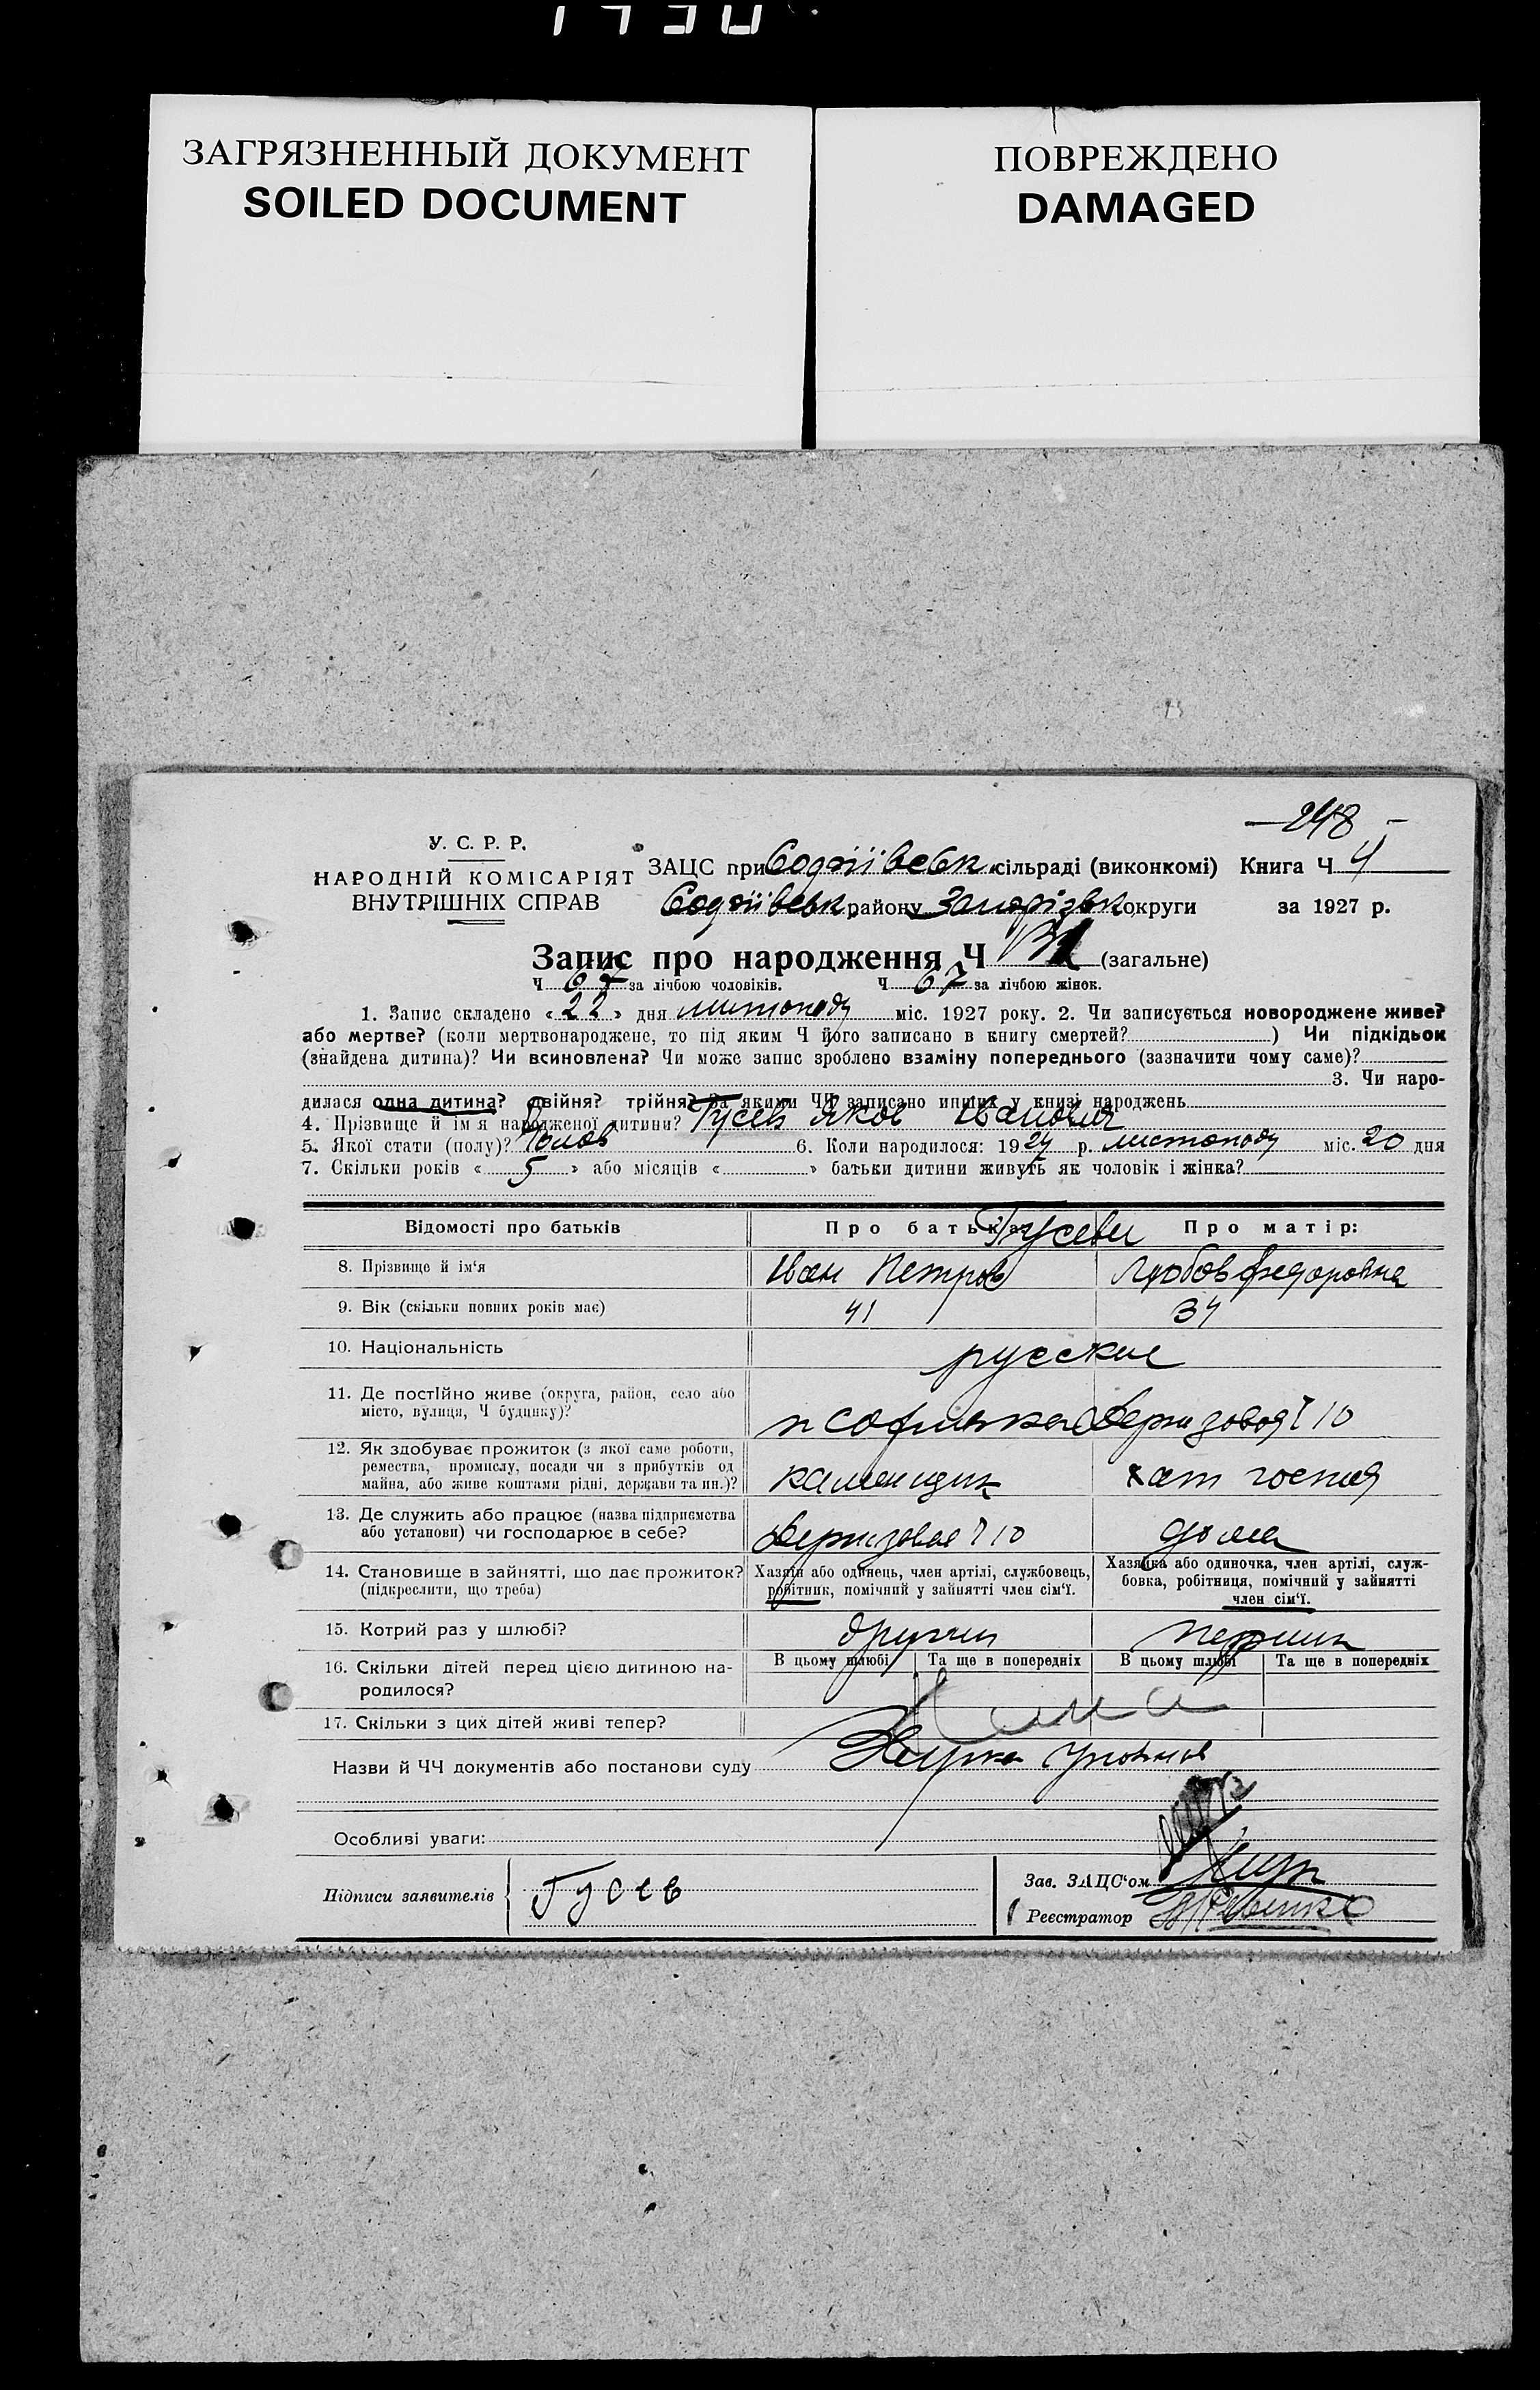 ЗАГРЯЗНЕННЫЙ ДОКУМЕНТ
SOILED DOCUMENT
ПОВРЕЖДЕНО
DAMAGED
— 248 —
У. С. Р. Р.
НАРОДНІЙ КОМІСАРІЯТ
ВНУТРІШНІХ СПРАВ
ЗАЦС при Софіївськ сільраді (виконкомі) Книга Ч 4
Софіївськ району Запорізьк округи за 1927 р.
Запис про народження Ч (загальне)
Ч 67 за лічбою чоловіків. Ч 67 за лічбою жінок.
1. Запис складено «22» дня листопаду міс. 1927 року. 2. Чи записується новороджене живе?
або мертве? (коли мертвонароджене, то під яким Ч його записано в книгу смертей?) Чи підкідьок
(знайдена дитина)? Чи всиновлена? Чи може запис зроблено взаміну попереднього (зазначити чому саме)?
3. Чи наро-
дилася одна дитина? двійня? трійня? За якими ЧЧ записано инших у книзі народжень
4. Прізвище й ім'я народженої дитини? Гусев Яков Иванович
5. Якої стати (полу)? 6. Коли народилося: 1927 р. листопаду міс. 20 дня
7. Скільки років «5» або місяців « » батьки дитини живуть як чоловік і жінка?
Відомості про батьків Про батька: Гусевы Про матір:
8. Прізвище й ім'я Иван Петров Любов Федоровна
9. Вік (скільки повних років має) 41 34
10. Національність русские
11. Де постійно живе (округа, район, село або
місто, вулиця, Ч будинку)?
12. Як здобуває прожиток (з якої саме роботи,
ремества, промислу, посади чи з прибутків од
майна, або живе коштами рідні, держави та ин.)? каменщик
13. Де служить або працює (назва підприємства
або установи) чи господарює в себе? дома
14. Становище в зайнятті, що дає прожиток?
(підкреслити, що треба)
Хазяїн або одинець, член артілі, службовець,
робітник, помічний у зайнятті член сім'ї.
Хазяйка або одиночка, член артілі, служ-
бовка, робітниця, помічний у зайнятті
член сім'ї.
15. Котрий раз у шлюбі?
16. Скільки дітей перед цією дитиною на-
родилося?
В цьому шлюбі Та ще в попередніх В цьому шлюбі Та ще в попередніх
17. Скільки з цих дітей живі тепер?
Назви й ЧЧ документів або постанови суду
Особливі уваги:
Підписи заявителів Гусев
Зав. ЗАЦС'ом
Реєстратор